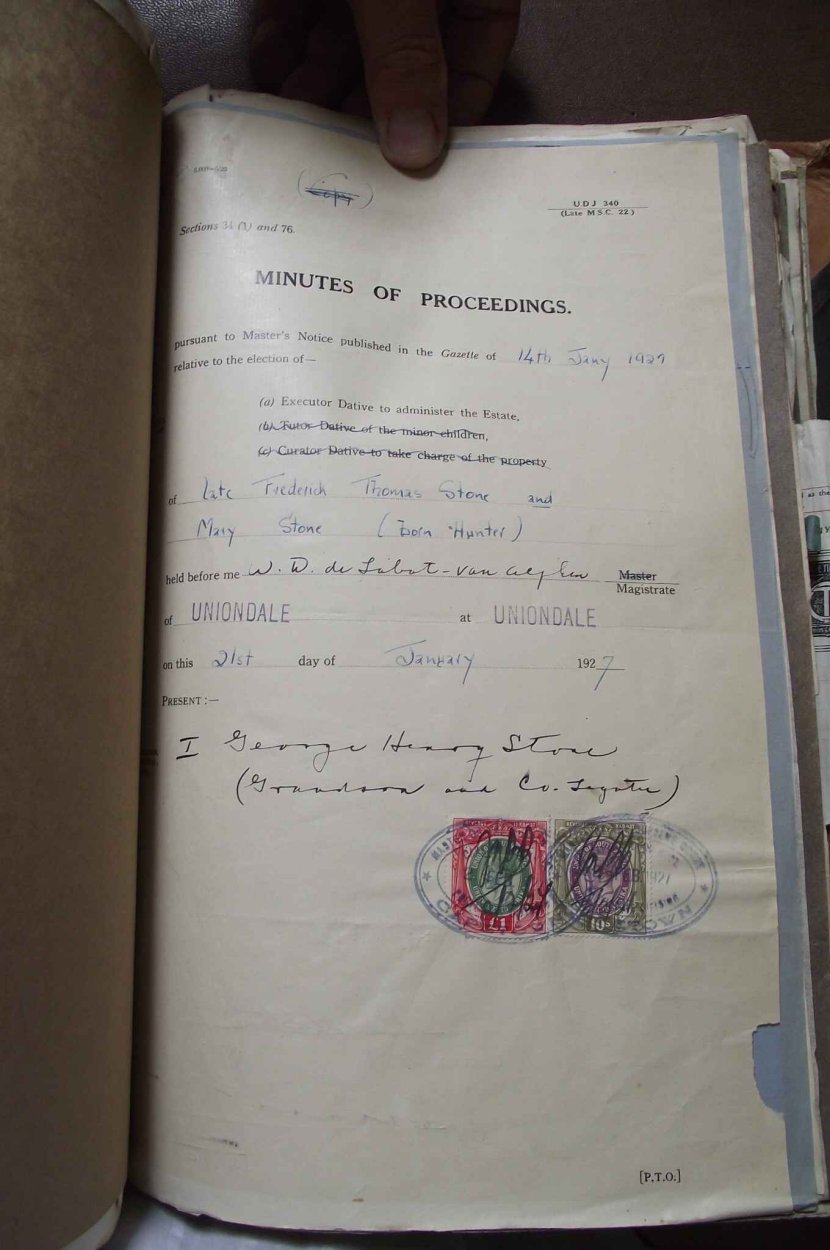 (Copy)
U.D.J 340
(Late M.S.C. 22.)
Sections 34 (1) and 76.
MINUTES OF PROCEEDINGS.
pursuant to Master's Notice published in the Gazette of 14th Jany 1927
relative to the election of—
(a) Executor Dative to administer the Estate,
(b) Tutor Dative of the minor children,
(c) Curator Dative to take charge of the property
of late Frederick Thomas Stone and
Mary Stone (born Hunter)
held before me W. W. de Labat - van Alphen Master
Magistrate
of UNIONDALE at UNIONDALE
on this 21st day of January 1927
PRESENT :—
I George Henry Stone
(Grandson and Co. Legatee)
£1 10s
[P.T.O.]